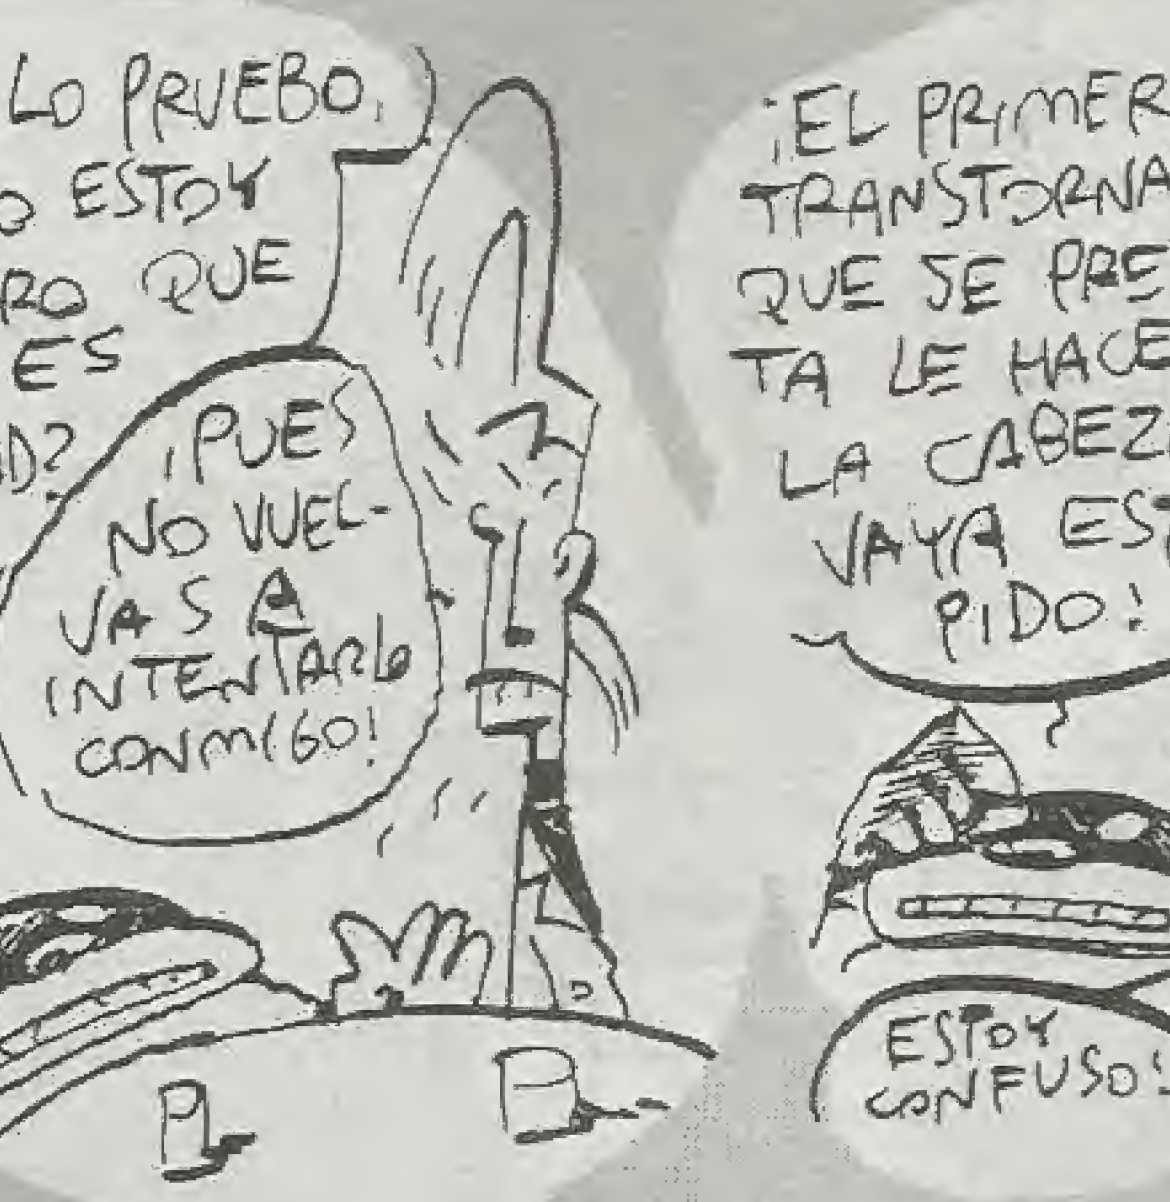 LO PRUEBO,
ESTOY
QUE
ES
¡PUES
NO VUEL-
VAS A
INTENTARLO
CONMIGO!
¡EL PRIMER
TRANSTORNA
QUE SE PRE
TA LE HACE
LA CABEZ
VAYA EST
PIDO!
ESTOY
CONFUSO!